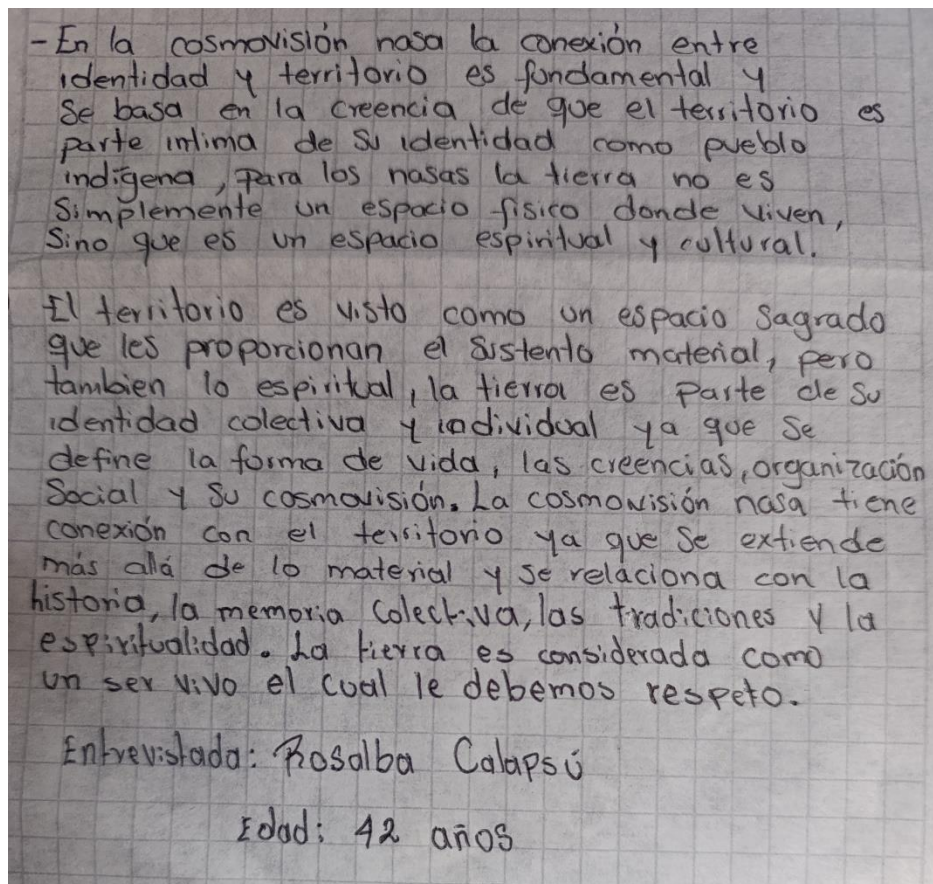 - En la cosmovisión nasa la conexión entre
identidad y territorio es fundamental y
se basa en la creencia de que el territorio es
parte intima de su identidad como pueblo
indígena, para los nasas la tierra no es
simplemente un espacio físico donde viven,
sino que es un espacio espiritual y cultural.
El territorio es visto como un espacio sagrado
que les proporcionan el sustento material, pero
tambien lo espiritual, la tierra es parte de su
identidad colectiva y individual ya que se
define la forma de vida, las creencias, organización
social y su cosmovisión. La cosmovisión nasa tiene
conexión con el territorio ya que se extiende
más allá de lo material y se relaciona con la
historia, la memoria colectiva, las tradiciones y la
espiritualidad. La tierra es considerada como
un ser vivo el cual le debemos respeto.
Entrevistada: Rosalba Calapsú
Edad: 42 años